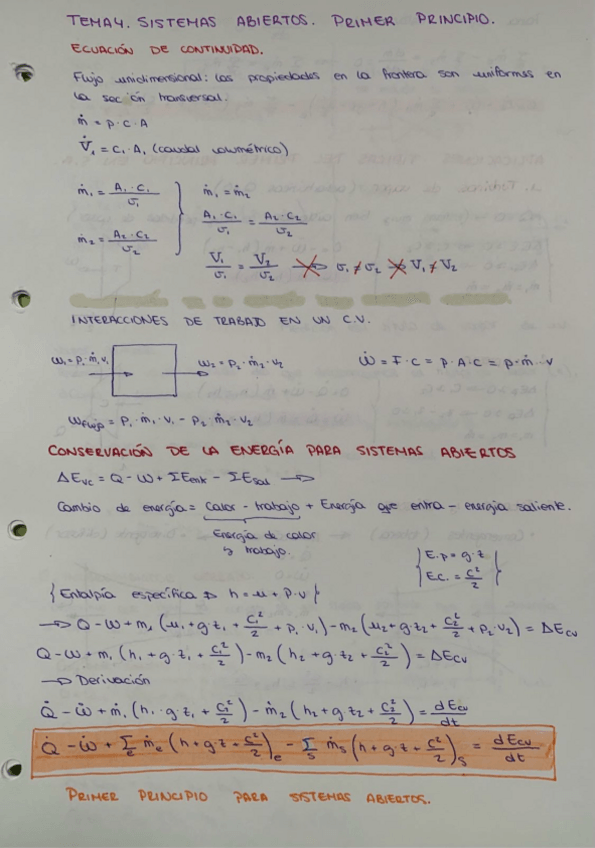 TEMA 4. SISTEMAS ABIERTOS. PRIMER PRINCIPIO.
ECUACIÓN DE CONTINUIDAD.
Flujo unidimensional: las propiedades en la frontera son uniformes en
la sección transversal.
ṁ = ρ · c · A
V̇₁ = c₁ · A₁ (caudal volumétrico)
ṁ₁ = A₁ · c₁ / v₁
ṁ₂ = A₂ · c₂ / v₂
ṁ₁ = ṁ₂
A₁ · c₁ / v₁ = A₂ · c₂ / v₂
V̇₁ / v₁ = V̇₂ / v₂ ⇒ v₁ ≠ v₂ ⇒ V̇₁ ≠ V̇₂
INTERACCIONES DE TRABAJO EN UN C.V.
ẇ₁ = p₁ · ṁ₁ v₁
ẇ₂ = p₂ · ṁ₂ · v₂
Ẇ = F · c = p · A · c = p · ṁ · v
ẇ flujo = p₁ · ṁ₁ · v₁ - p₂ · ṁ₂ · v₂
CONSERVACIÓN DE LA ENERGÍA PARA SISTEMAS ABIERTOS
ΔEvc = Q - W + ΣEentr - ΣEsal →
Cambio de energía = Calor - trabajo + Energía que entra - energía saliente.
Energía de calor
y trabajo.
E.p = g · z
E.c. = c²/2
{Entalpía específica ⇒ h = u + p · v}
→ Q - W + m₁ (u₁ + g · z₁ + c₁²/2 + p₁ · v₁) - m₂ (u₂ + g · z₂ + c₂²/2 + p₂ · v₂) = ΔEcv
Q - W + m₁ (h₁ + g · z₁ + c₁²/2) - m₂ (h₂ + g · z₂ + c₂²/2) = ΔEcv
→ Derivación
Q̇ - Ẇ + ṁ₁ (h₁ · g z₁ + c₁²/2) - ṁ₂ (h₂ + g z₂ + c₂²/2) = dEcv/dt
Q̇ - Ẇ + Σe ṁe (h + g z + c²/2)e - Σs ṁs (h + g · z + c²/2)s = dEcv/dt
PRIMER PRINCIPIO PARA SISTEMAS ABIERTOS.